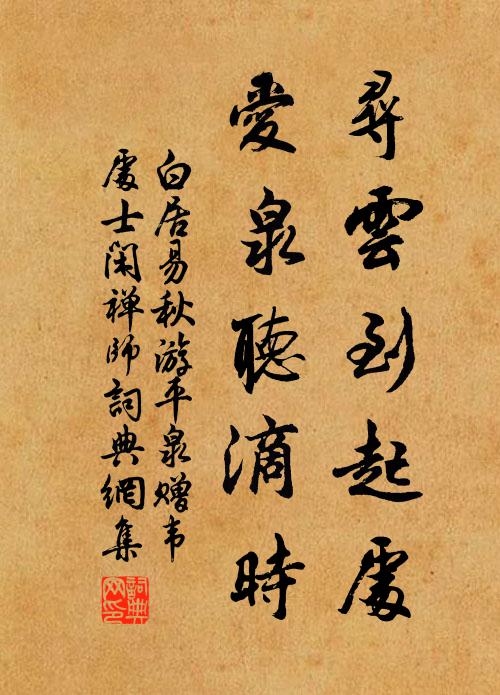 尋雲到起處
愛泉聽滴時
白居易秋游平泉贈韦
處士閑禅师詞典網集
詞典网印